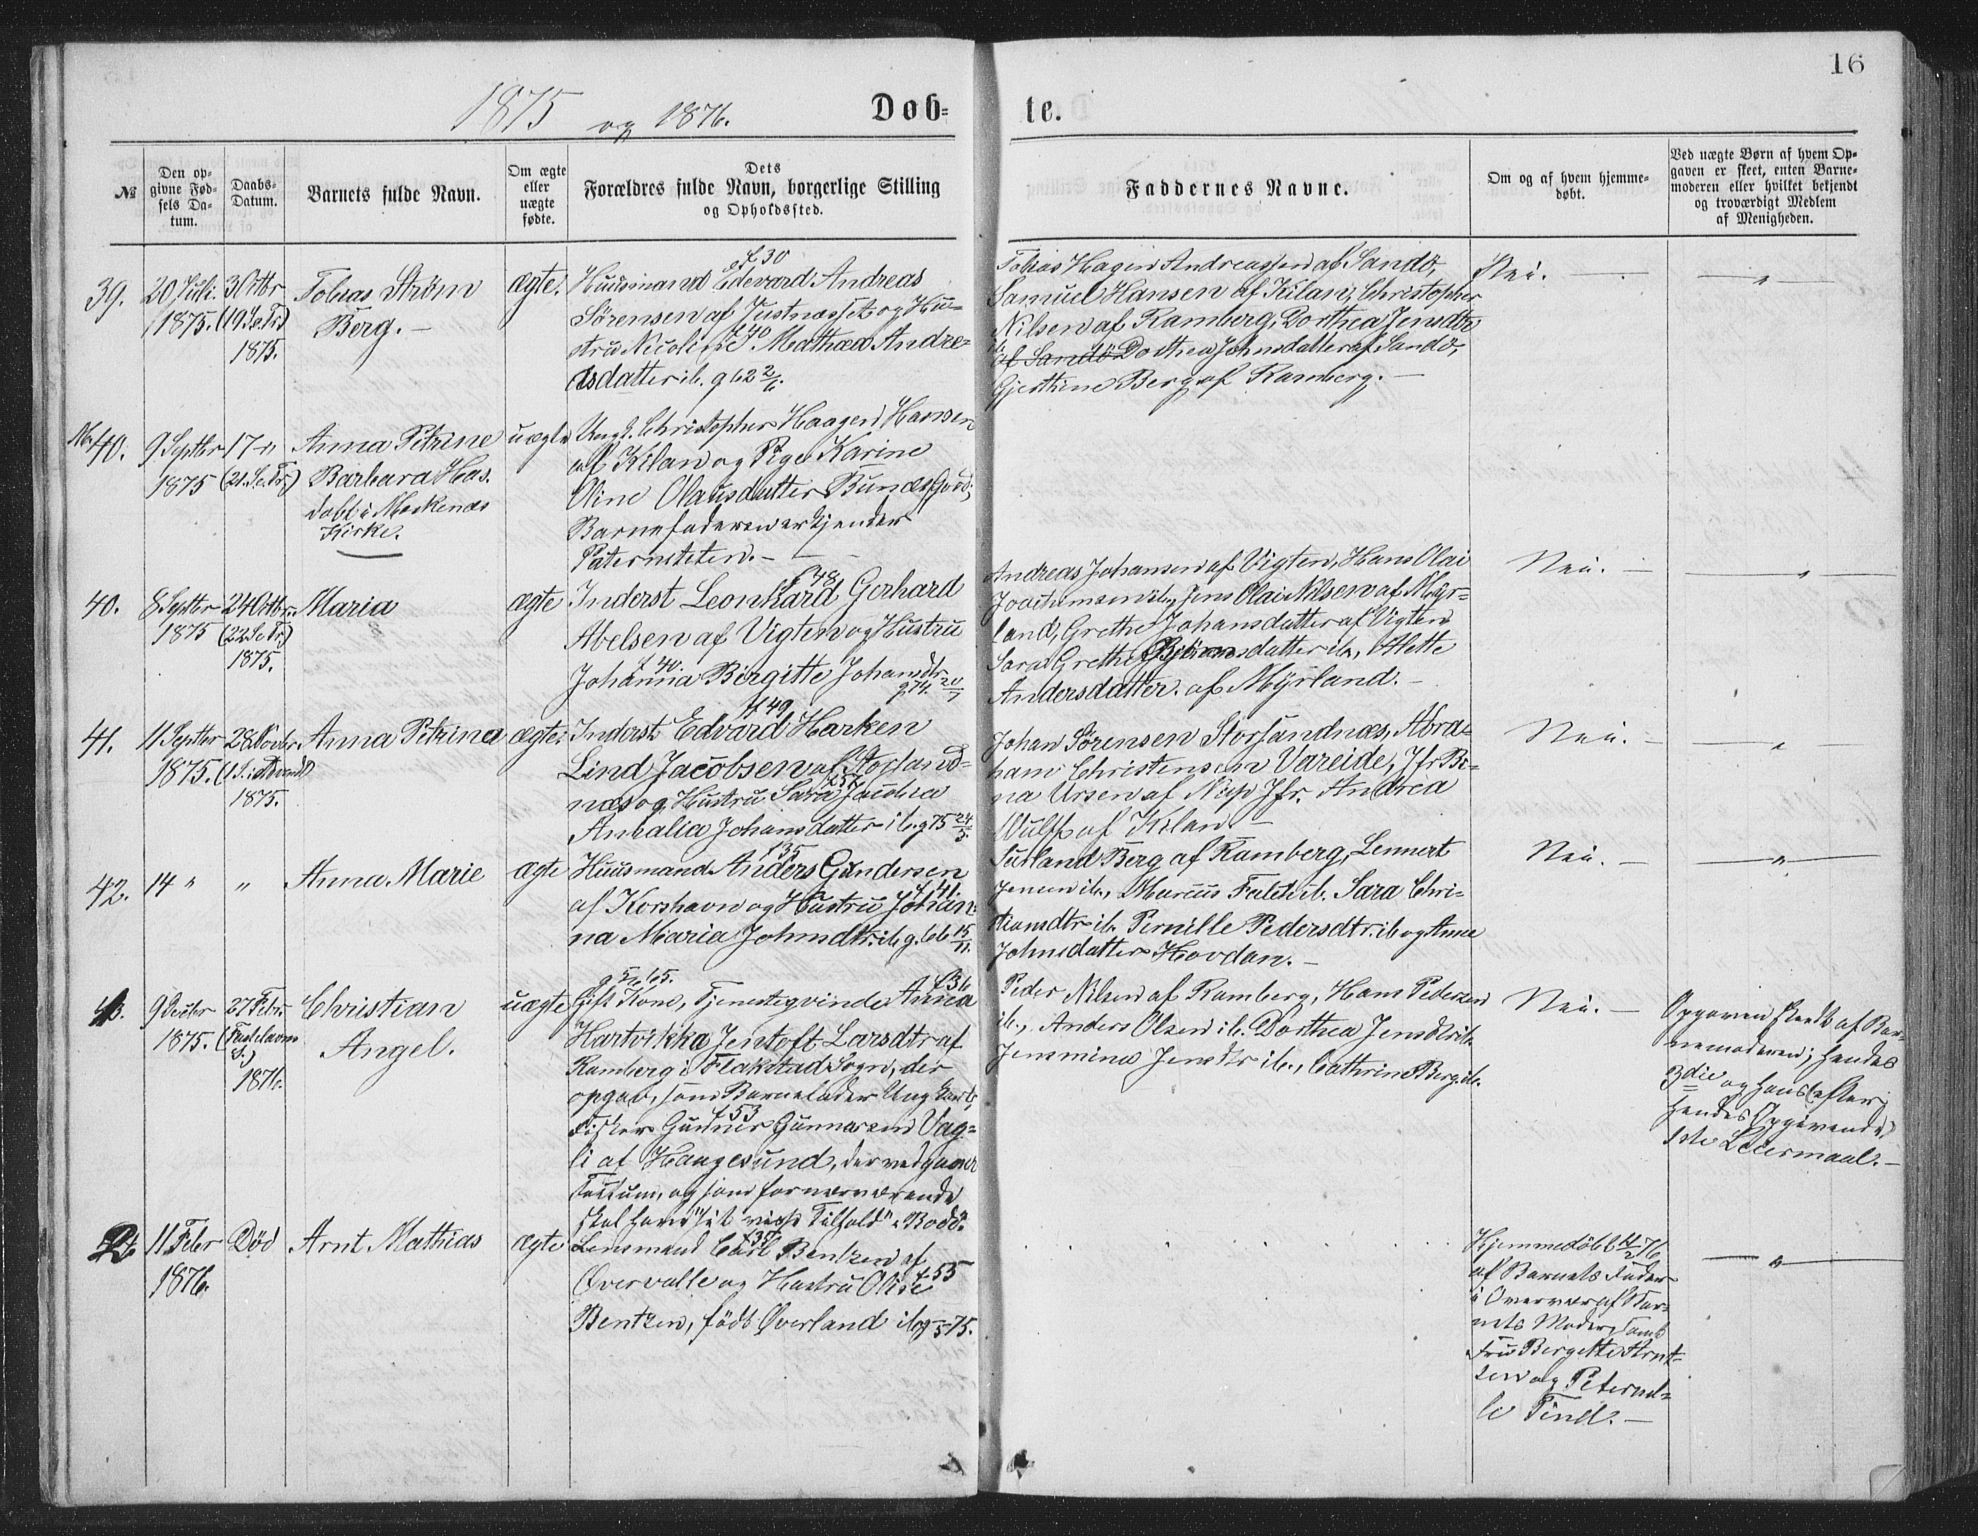 16
1875 og 1876.
Døb-
te.
№
Den op-
givne Fød-
sels Da-
tum.
Daabs-
Datum.
Barnets fulde Navn.
Om ægte
eller
uægte
fødte.
Dets
Forældres fulde Navn, borgerlige Stilling
og Opholdssted.
Faddernes Navne.
Om og af hvem hjemme-
døbt.
Ved uægte Børn af hvem Op-
gaven er skeet, enten Barne-
moderen eller hvilket bekjendt
og troværdigt Medlem
af Menigheden.
39.
20 Juli
1875.
3 Octbr
(19. S. e. Tr.)
1875.
Tobias Strøm
Berg. –
ægte.
f. 30
Huusmand Edevard Andreas
Sørensen af Justnæs og Hu-
stru Nicoline Mathea Andre-
f. 40
asdatter ib. g 62 2/6.
Tobias Hagen Andreassen af Sandø,
Samuel Hansen af Kilan, Christopher
Nilsen af Ramberg, Dorthea Jensdtr
ib. af Sandø Dorthea Johnsdatter af Sandø,
Gjertine Berg af Ramberg. –
Nei. –
"
No 40.
9 Septbr
1875
17 "
(21. S. e. Tr.)
Anna Petrine
Barbara Has.
døbt i Moskenæs
Kirke.
uægte
Ungk. Christopher Haagen Hansen
af Kilan og Pige Karine
Oline Olausdatter Bunæs
Barnefaderen erkjender
Paterniteten. –
40.
8 Septbr
1875
24 Octbr
(22 S. e. Tr.)
1875.
Maria
ægte
f. 48
Inderst Leonhard Gerhard
Abelsen af Vigten og Hustru
f. 40.
Johanna Birgitte Johansdtr
g 74. 20/7
Andreas Johansen af Vigten, Hans Olai
Joachimsen ib., Jens Olai Nilsen af Myr-
land, Grethe Johansdatter af Vigten
Sara Grethe Bjørnsdatter ib.,
Andersdatter af Myrland. –
Nei. –
"
41.
11 Septbr
1875.
28 Novbr
(1 S. i Advent)
1875.
Anna Petrina
ægte.
f 49
Inderst Edvard Harken
Lind Jacobsen af Storsand-
næs og Hustru Sara Jacobea
f 52
Amalia Johansdatter ib. g 75 24/5.
Johan Sørensen Storsandnæs, Abra-
ham Christensen Vareide, Jfr Bi-
na Ursen af Nap Jfr. Andrea
Wulff af Kilan –
Nei. –
"
42.
14 "
"
Anna Marie
ægte
f 35
Huusmand Anders Gundersen
f. 41.
af Korshavn og Hustru Johan-
na Maria Johnsdtr. ib. g. 66 15/11.
Berg af Ramberg, Lennert
Jensen ib., Marcus Falch ib. Sara Chri-
stiansdtr ib. Pernille Pedersdtr. ib og Anne
Johnsdatter Hovdan. –
Nei. –
"
43.
9 Decbr
1875.
27 Febr
(Fastelavns
S.)
1876.
Christian
Angel.
uægte
f 36
Gift Kone, Tjenesteqvinde Anna
Hartvikka Jentoft Larsdtr af
Ramberg i Flakstad Sogn, der
opgav, som Barnefader Ungkarl,
f 53
Fisker Gunner Gunnersen Vag-
li af Haugesund, der vedgaaer
Factum, og som fornærværende
skal have sit visse Tilhold i Bodø.
Peder Nilsen af Ramberg, Hans Pedersen
ib., Anders Olsen ib. Dorthea Jensdtr ib.
Jensmine Jensdtr ib., Cathrine Berg ib.
Nei. –
Opgaven skeedt af Bar-
nemoderen; hendes
3die og hans (efter
hendes Opgivende)
1ste Leiermaal. –
11 Febr
1876.
Død
Arnt Mathias
ægte
f 35
Lensmand Carl Bentzen af
f 55
Øvervalle og Hustru Olise
Bentzen, født Øverland ib g 75.
Hjemmedøbt 11/2 76
af Barnets Fader
i Overvær af Bar-
nets Moder, samt
Fru Bergitte Arnt-
sen og Peternel-
le Tind. –
"